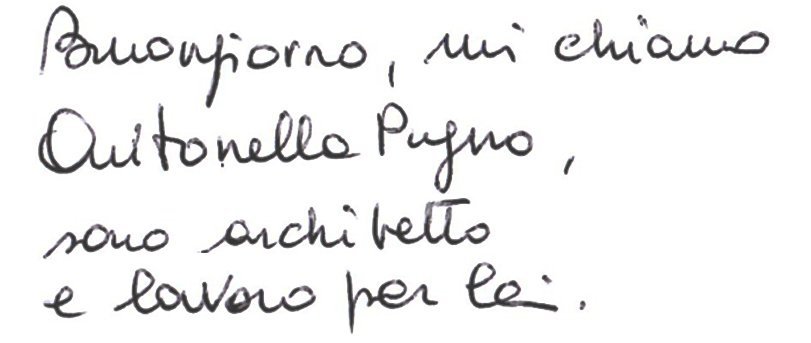 Buongiorno, mi chiamo
Antonella Pugno,
sono architetto
e lavoro per lei.